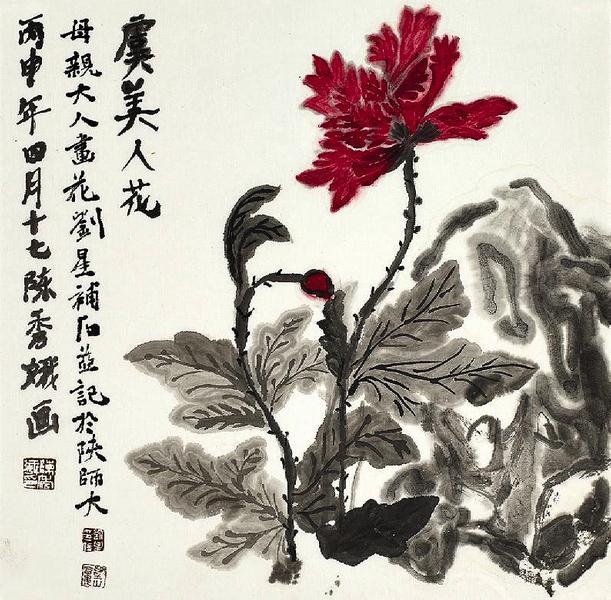 虞美人花
母親大人畫花劉星補石並記於陝師大
丙申年四月十七陈秀娥画